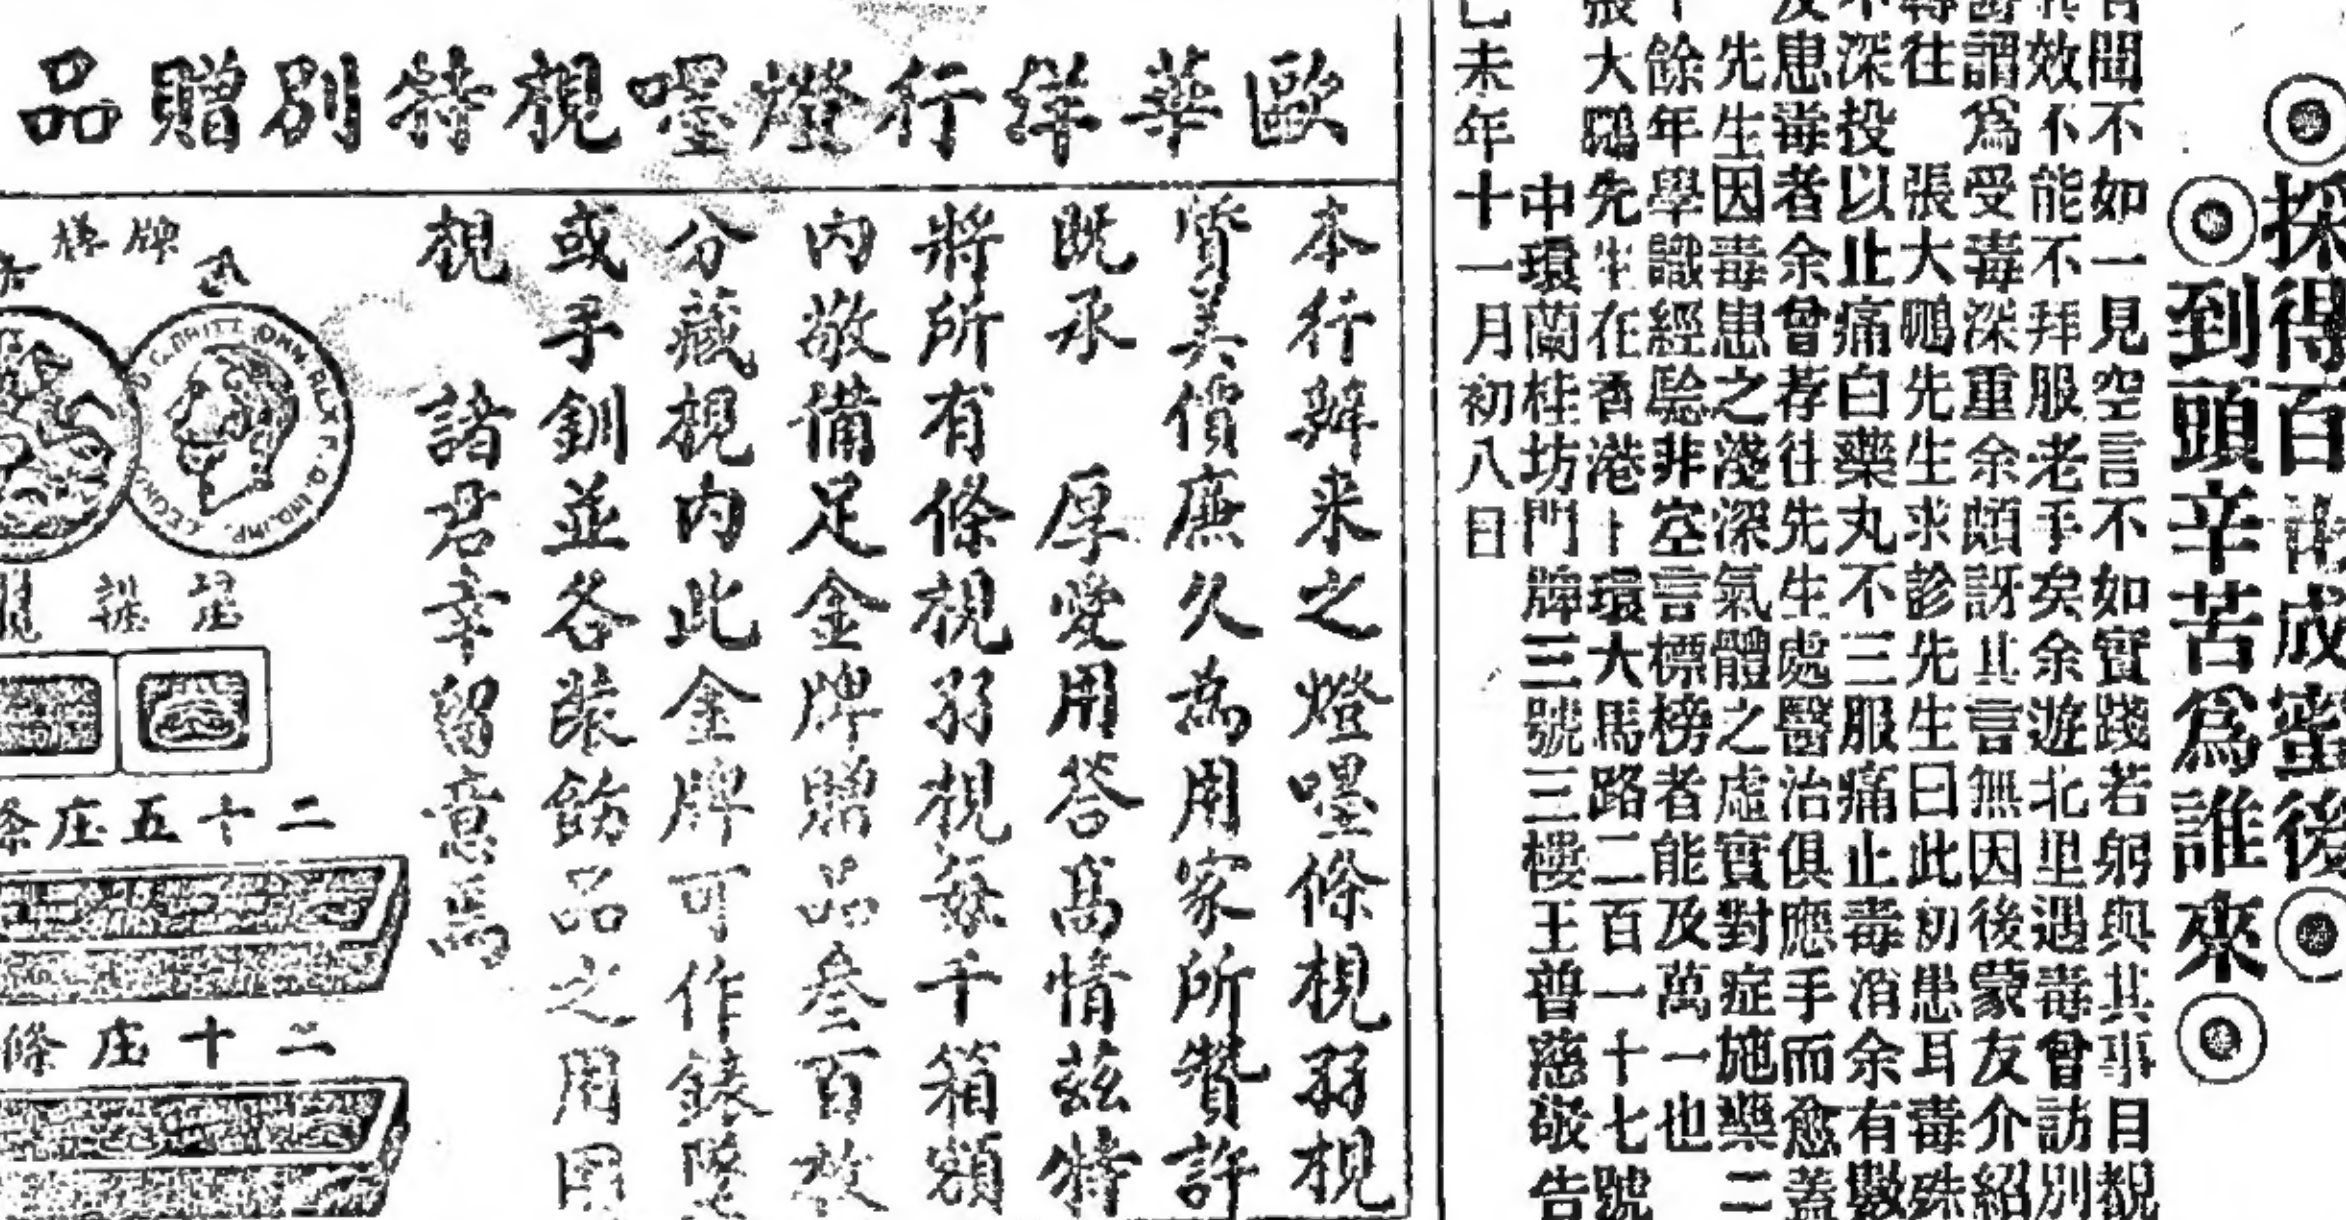 採得百花成蜜後
到頭辛苦爲誰來
聞不如一見空言不如實踐若躬與其事目覩
其效不能不拜服老手矣余遊北里遇毒曾訪別
醫謂爲受毒深重余頗訝其言無因後蒙友介紹
轉往 張大鵬先生求診先生曰此初患耳毒殊
不深投以止痛白藥丸不三服痛止毒消余有數
友患毒者余曾荐往先生處醫治俱應手而愈蓋
先生因毒患之淺深氣體之虛實對症施藥二
十餘年學識經驗非空言標榜者能及萬一也
張大鵬先生在香港上環大馬路二百一十七號
中環蘭桂坊門牌三號三樓王普慈敬告
己未年十一月初八日
歐華洋行燈嘜梘特別贈品
本行辦来之燈嘜條梘孖梘
質美價廉久為用家所贊許
既承 厚愛用答高情茲特
將所有條梘孖梘每千箱額
內敬備足金牌贈品叁百枚
分藏梘內此金牌可作錶墜
或手釧並各裝飾品之用
梘 諸君幸留意焉
牌樣
二十五庄條
二十庄條